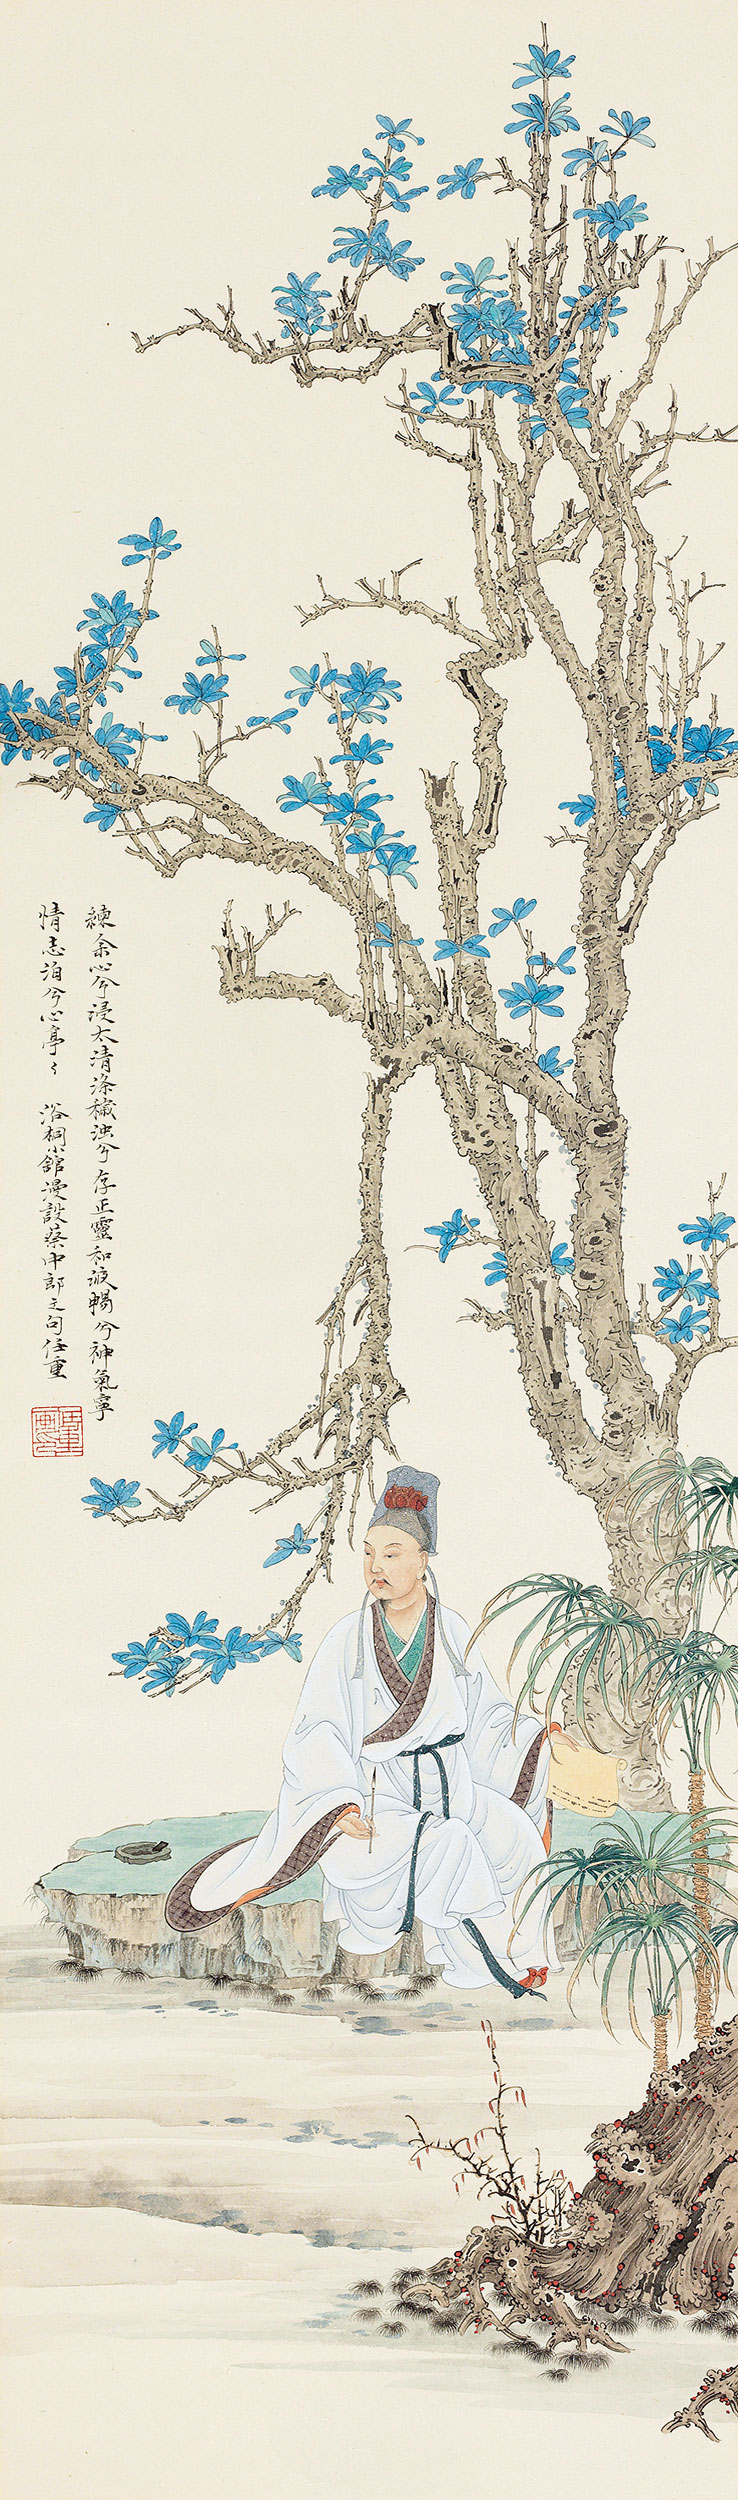 練余心兮浸太清滌穢濁兮存正靈和液暢兮神氣寧
情志泊兮心亭〻 浴桐小館漫設蔡中郎之句任重